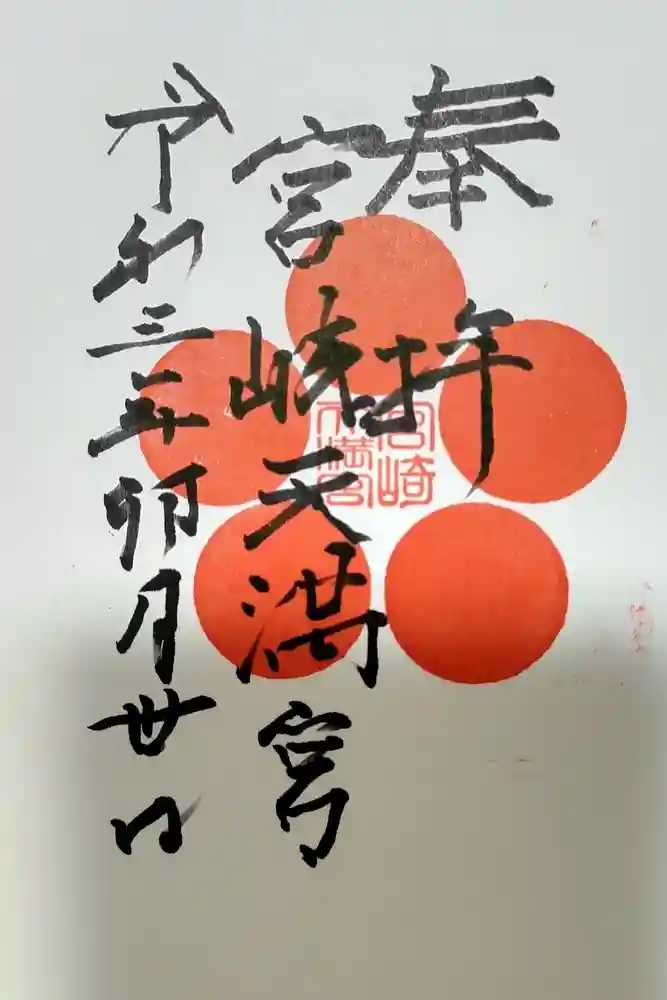 奉拝
宮崎天満宮
令和三年卯月丗日
宮崎
天満宮